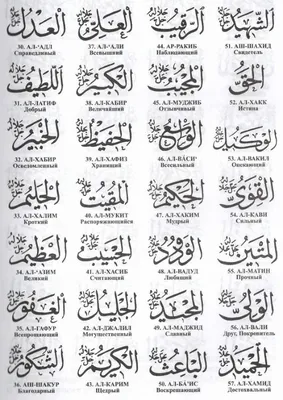 العدل
30. АЛ-‘АДЛ
Справедливый
اللطيف
31. АЛ-ЛАТИФ
Добрый
الخبير
32. АЛ-ХАБИР
Осведомленный
الحليم
33. АЛ-ХАЛИМ
Кроткий
العظيم
34. АЛ-‘АЗИМ
Великий
الغفور
35. АЛ-ГАФУР
Всепрощающий
الشكور
36. АШ-ШАКУР
Благодарный
العلي
37. АЛ-‘АЛИ
Всевышний
الكبير
38. АЛ-КАБИР
Величайший
الحفيظ
39. АЛ-ХАФИЗ
Хранящий
المقيت
40. АЛ-МУКИТ
Распоряжающийся
الحسيب
41. АЛ-ХАСИБ
Считающий
الجليل
42. АЛ-ДЖАЛИЛ
Могущественный
الكريم
43. АЛ-КАРИМ
Щедрый
الرقيب
44. АР-РАКИБ
المجيب
45. АЛ-МУДЖИБ
Отзывчивый
الواسع
46. АЛ-ВАСИ‘
Всесильный
الحكيم
47. АЛ-ХАКИМ
Мудрый
الودود
48. АЛ-ВАДУД
Любящий
المجيد
49. АЛ-МАДЖИД
Славный
الباعث
50. АЛ-БА‘ИС
Воскрешающий
الشهيد
51. АШ-ШАХИД
Свидетель
الحق
52. АЛ-ХАКК
Истина
الوكيل
53. АЛ-ВАКИЛ
Опекающий
القوي
54. АЛ-КАВИ
Сильный
المتين
55. АЛ-МАТИН
Прочный
الولي
56. АЛ-ВАЛИ
Друг, Покровитель
الحميد
57. АЛ-ХАМИД
Достохвальный